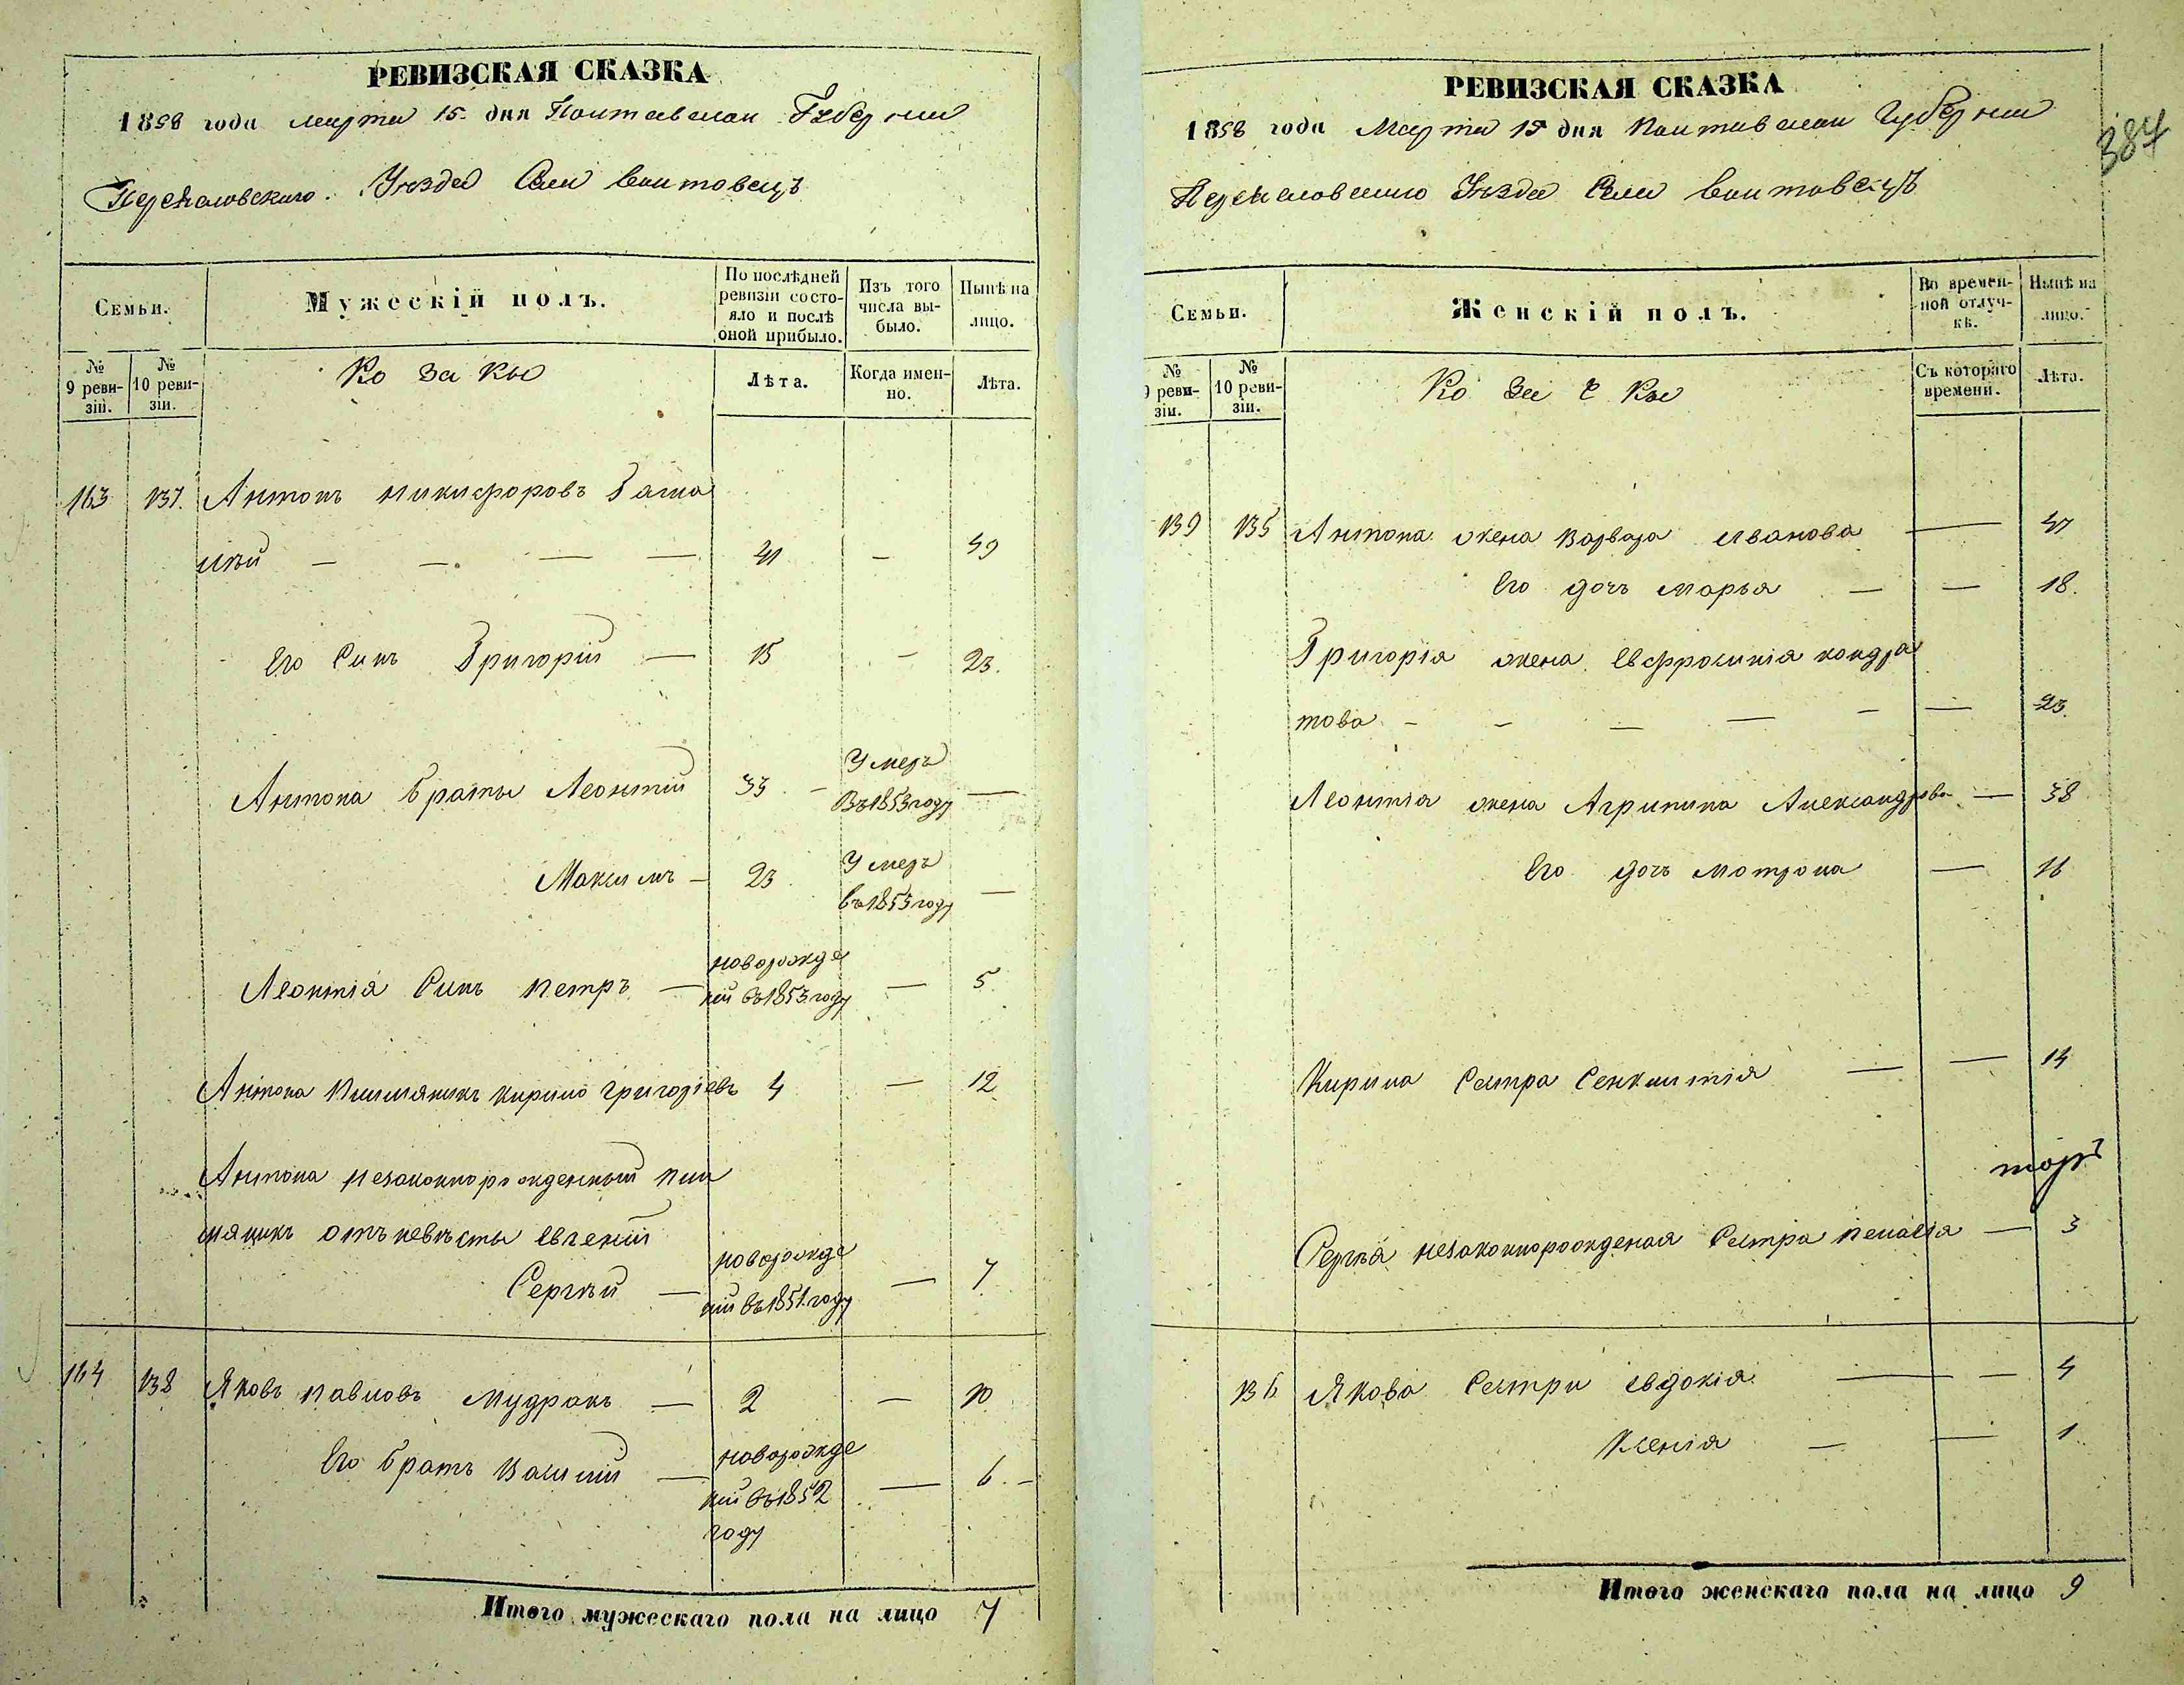 РЕВИЗСКАЯ СКАЗКА
1858 года марта 15 дня Полтавской Губернии
Переяловского Уѣзда Села Воитовецъ
Семьи.
Мужескій полъ.
По послѣдней ревизіи состояло и послѣ оной прибыло.
Изъ того числа выбыло.
Нынѣ на лицо.
№ 9 ревизіи.
№ 10 ревизіи.
Козаки
Лѣта.
Когда именно.
Лѣта.
163 137. Антонъ Никифоровъ Гама
лѣй — — — — 41 — 49
Его Синъ Григорій — 15 — 23.
Антона браты Леонтій 33 — Умеръ въ 1853 году —
Максимъ — 23 Умеръ въ 1853 году —
Леонтія Синъ Петръ — новорожде ній въ 1853 году — 5
Антона Племяникъ Кирило Григоріевъ 4 — 12
Антона незаконнорожденный пле
мяникъ отъ невѣсты Евгеніи
Сергѣй — новорожде ній въ 1851 году — 7
164 138 Яковъ Павловъ Мудракъ — 2 — 10
Его братъ Василій — новорожде ній въ 1852 году — 6. –
Итого мужескаго пола на лицо 7
РЕВИЗСКАЯ СКАЗКА
384
1858 года Марта 15 дня Полтавской Губернии
Переяловского Уѣзда Села Воитовецъ
Семьи.
Женскій полъ.
Во временной отлучкѣ.
Нынѣ на лицо.
№ 9 ревизіи.
№ 10 ревизіи.
Козачки
Съ котораго времени.
Лѣта.
139 135 Антона жена Варвара Иванова — 47
Его дочъ Марья — — 18.
Григорія жена Евфросинія Кондра
това — — — — — — 23.
Леонтія жена Агрипина Александрова — 38
Его дочъ Мотрона — 16
Кирила Сестра — — 14
Сергѣя незаконнорожденая Сестра Пелагія — 3
136 Якова Сестри Евдокія — — 4
Ксенія — — 1
Итого женскаго пола на лицо 9